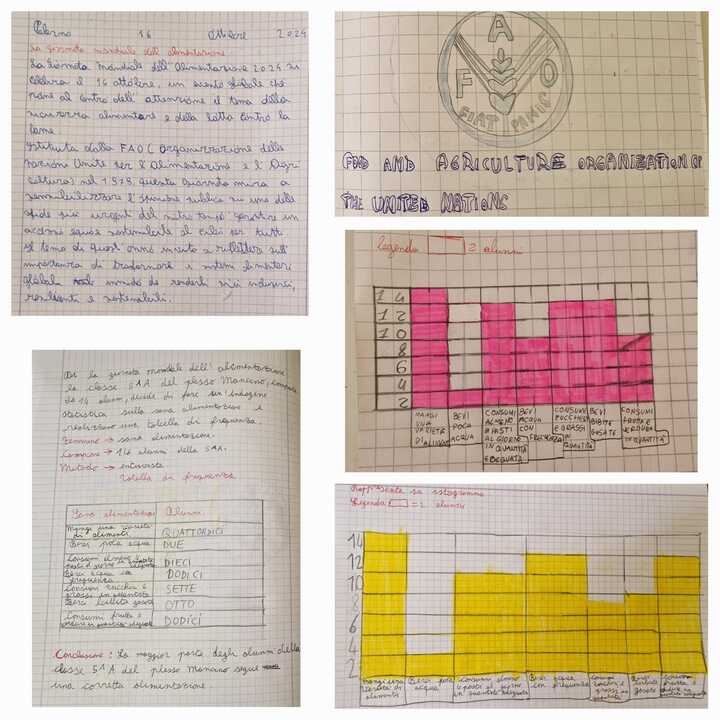 Palermo 16 Ottobre 2024
La Giornata mondiale dell'alimentazione
La Giornata Mondiale dell'Alimentazione 2024 si
celebra il 16 ottobre, un evento globale che
pone al centro dell'attenzione il tema della
sicurezza alimentare e della lotta contro la
fame.
Istituita dalla FAO (Organizzazione delle
Nazioni Unite per l'Alimentazione e l'Agri
coltura) nel 1979, questa giornata mira a
sensibilizzare l'opinione pubblica su una delle
sfide più urgenti del nostro tempo: garantire un
accesso equo e sostenibile al cibo per tutti
il tema di quest'anno invita a riflettere sull'
importanza di trasformare i sistemi alimentari
globali in modo da renderli più inclusivi,
resilienti e sostenibili.
F A O
FIAT PANIS
FOOD AND AGRICULTURE ORGANIZATION OF
THE UNITED NATIONS
legenda 2 alunni
14
12
10
8
6
4
2
MANGI
UNA
VARIETÀ
D'ALIMENTI
BEVI
POCA
ACQUA
CONSUMI
ALMENO
PASTI
AL GIORNO
IN QUANTITÀ
ADEGUATA
BEVI
ACQUA
CON
FREQUENZA
CONSUMI
ZUCCHERI
E GRASSI
IN
QUANTITÀ
BEVI
BIBITE
GASATE
CONSUMI
FRUTTA E
VERDURA
IN QUANTITÀ
Per la giornata mondiale dell'alimentazione
la classe 5^A A del plesso Mancino, composta
da 14 alunni, decide di fare un'indagine
statistica sulla sana alimentazione e
realizzare una tabella di frequenza.
Fenomeno → sana alimentazione.
Campione → 14 alunni della 5^A A.
Metodo → intervista
Tabella di frequenza
Sana alimentazione Alunni
Mangi una varietà di alimenti QUATTORDICI
Bevi poca acqua DUE
Consumi almeno pasti al giorno in quantità adeguata DIECI
Bevi acqua con frequenza DODICI
Consumi zuccheri e grassi in quantità SETTE
Bevi bibite gasate OTTO
Consumi frutta e verdura in quantità adeguata DODICI
Conclusione: La maggior parte degli alunni della
classe 5^A A del plesso Mancino segue
una corretta alimentazione
Rappresenta su istogramma
Legenda: = 2 alunni
14
12
10
8
6
4
2
Mangi una
varietà di
alimenti
Bevi poca
acqua
Consumi almeno
pasti al giorno
in quantità adeguata
Bevi acqua
con frequenza
Consumi
zuccheri e
grassi in
quantità
Bevi
bibite
gasate
Consumi
frutta e
verdura in
quantità adeguata